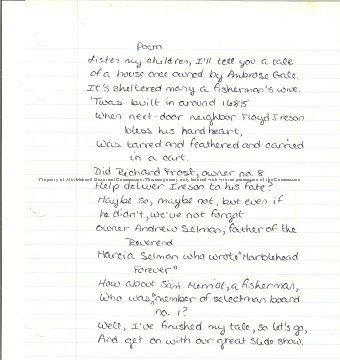 Poem
Listen my children, I'll tell you a tale
of a house once owned by Ambrose Gale.
It's sheltered many a fisherman's wive.
'Twas built in around 1685
When next-door neighbor Floyd Ireson
bless his hard heart,
Was tarred and feathered and carried
in a cart.
Did Richard Frost, owner no. 8
Property of Marblehead
Help deliver Ireson to his fate?
Maybe so, maybe not, but even if
he didn't, we've not forgot
Owner Andrew Selman, father of the
Reverend
Marcia Selman who wrote "Marblehead
Forever"
How about Sam. Merriot, a fisherman,
Who was member of selectman board
no. 1?
Well, I've finished my tale, so let's go,
And get on with our great slide show.